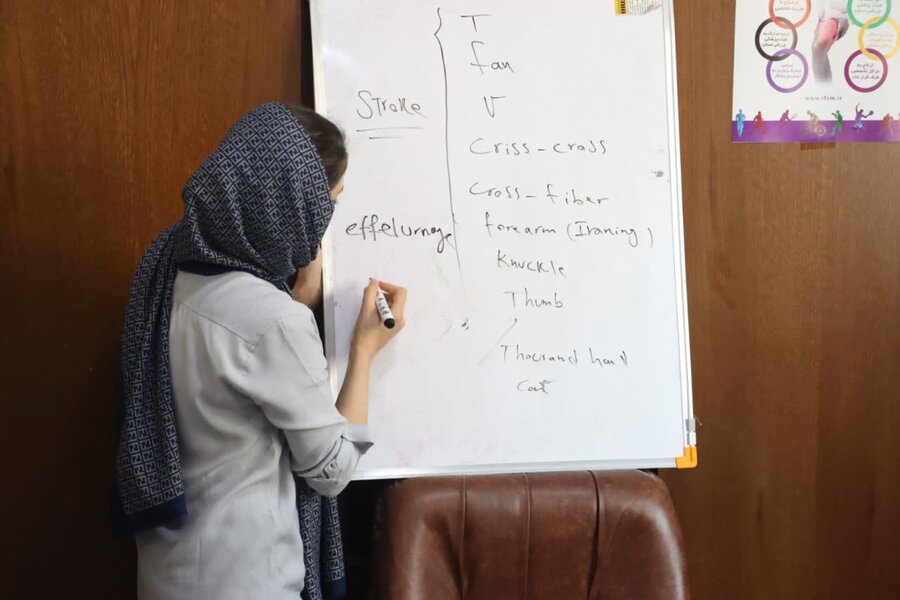 T
fan
Stroke
V
Criss-cross
Cross-fiber
effelurnage
forearm (Ironing)
Knuckle
Thumb
Thousand hand
Cat
www.ifsm.ir